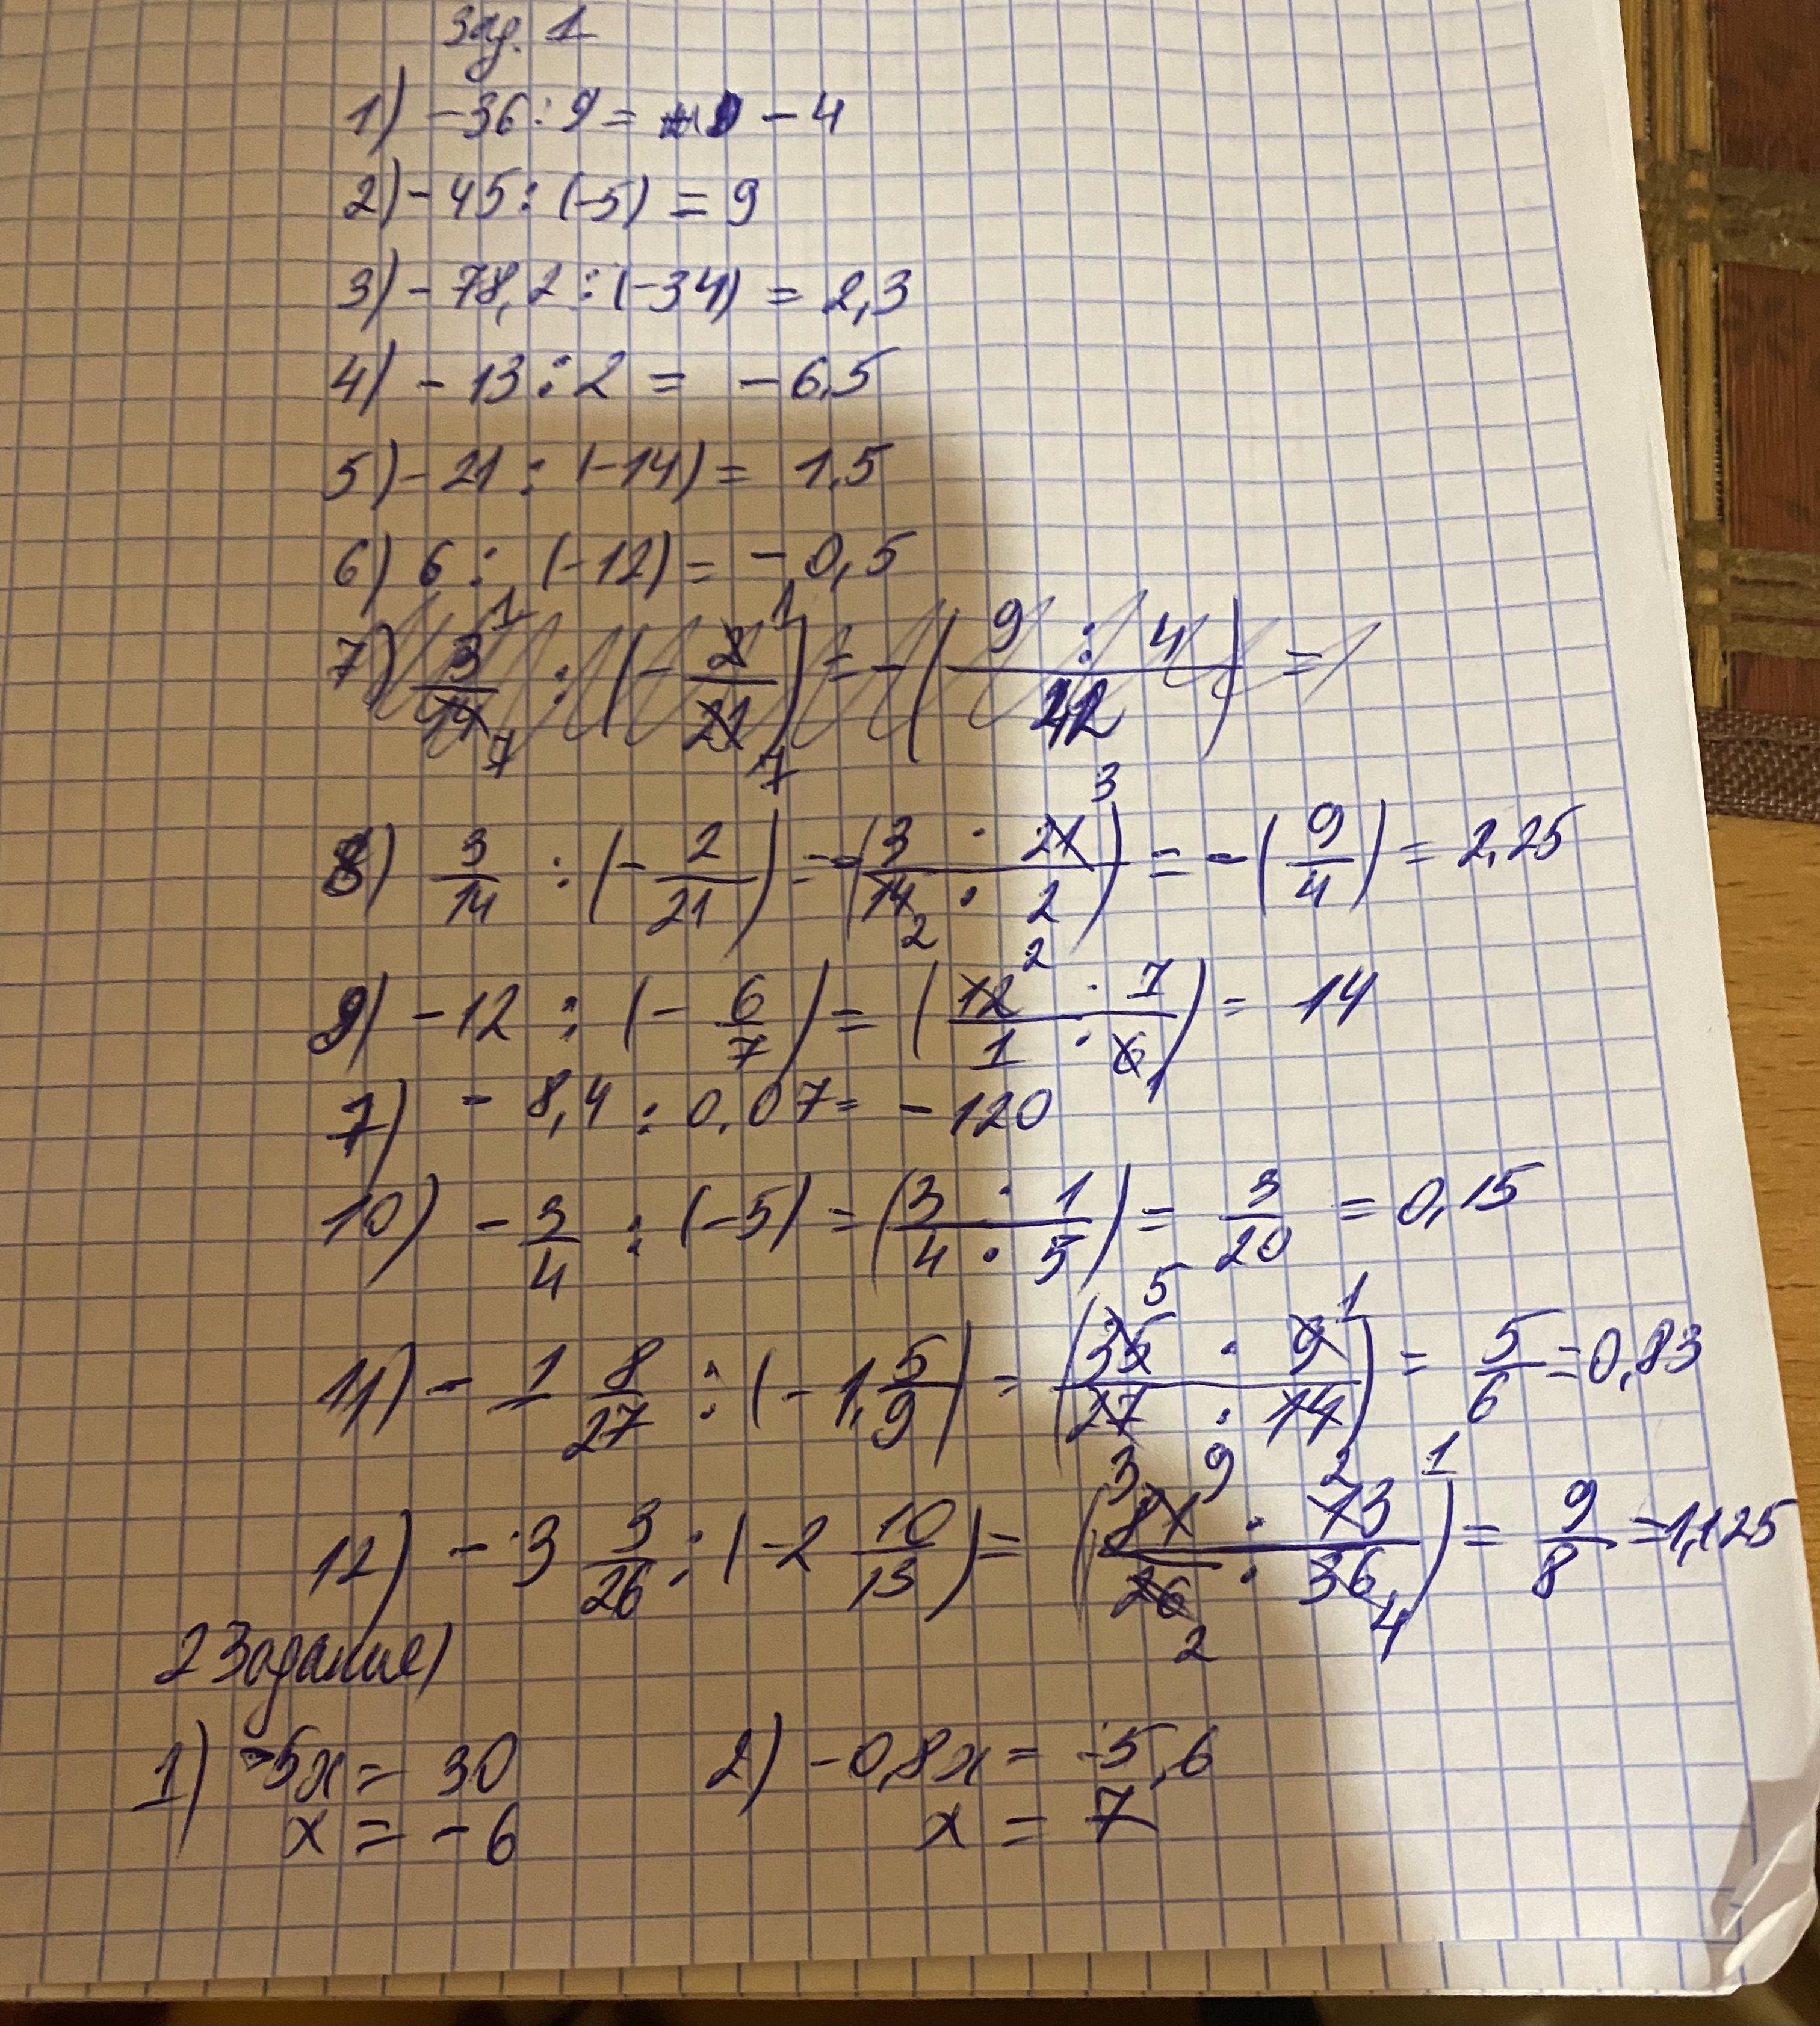 Зад. 1
1) -36 : 9 = -4
2) -45 : (-5) = 9
3) -78,2 : (-34) = 2,3
4) -13 : 2 = -6,5
5) -21 : (-14) = 1,5
6) 6 : (-12) = -0,5
7) 3/14 : (-2/21) = -(9 : 4/42) =
8) 3/14 : (-2/21) = -(3 · 21/14 · 2) = -(9/4) = 2,25
9) -12 : (-6/7) = (12 · 7/1 · 6) = 14
7) -8,4 : 0,07 = -120
10) -3/4 : (-5) = (3 · 1/4 · 5) = 3/20 = 0,15
11) -1 8/27 : (-1,5/9) = (35 · 9/27 · 14) = 5/6 = 0,83
12) -3 3/26 : (-2 10/13) = (81 · 13/26 · 36) = 9/8 = 1,125
2 Задание)
1) -5x = 30 2) -0,8x = -5,6
x = -6 x = 7